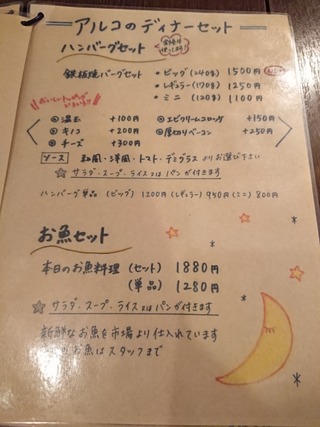 アルコのディナーセット
ハンバーグセット
鉄板焼バーグセット ・ビッグ(240g) 1500円
・レギュラー(170g) 1250円
・ミニ (120g) 1100円
温玉 +100円
キノコ +200円
チーズ +300円
エビクリームコロッケ +150円
厚切りベーコン +250円
ソース 和風・洋風・トマト・デミグラス よりお選び下さい
☆サラダ・スープ・ライス又はパンが付きます
ハンバーグ単品 (ビッグ) 1200円 (レギュラー) 950円 (ミニ) 800円
お魚セット
本日のお魚料理 (セット) 1880円
(単品) 1280円
☆サラダ・スープ・ライス又はパンが付きます
新鮮なお魚を市場より仕入れています
のお魚はスタッフまで